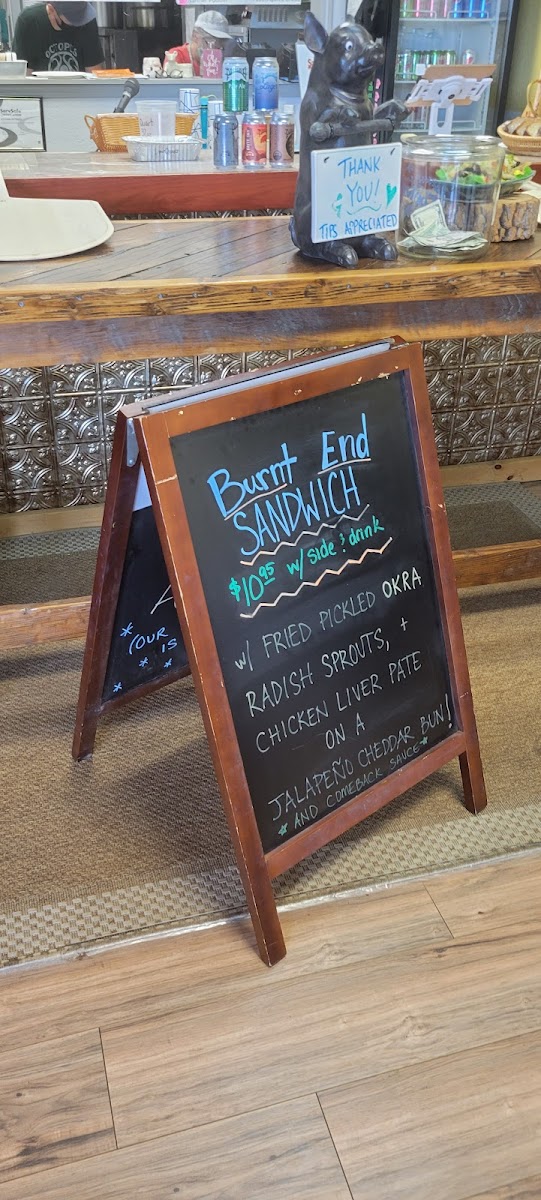 OCTOPUS
THANK
YOU!
TIPS APPRECIATED
Burnt End
SANDWICH
$10.95 w/ side & drink
w/ FRIED PICKLED OKRA
RADISH SPROUTS, +
CHICKEN LIVER PATE
ON A
JALAPEÑO CHEDDAR BUN!
* AND COMEBACK SAUCE *
* (OUR
IS